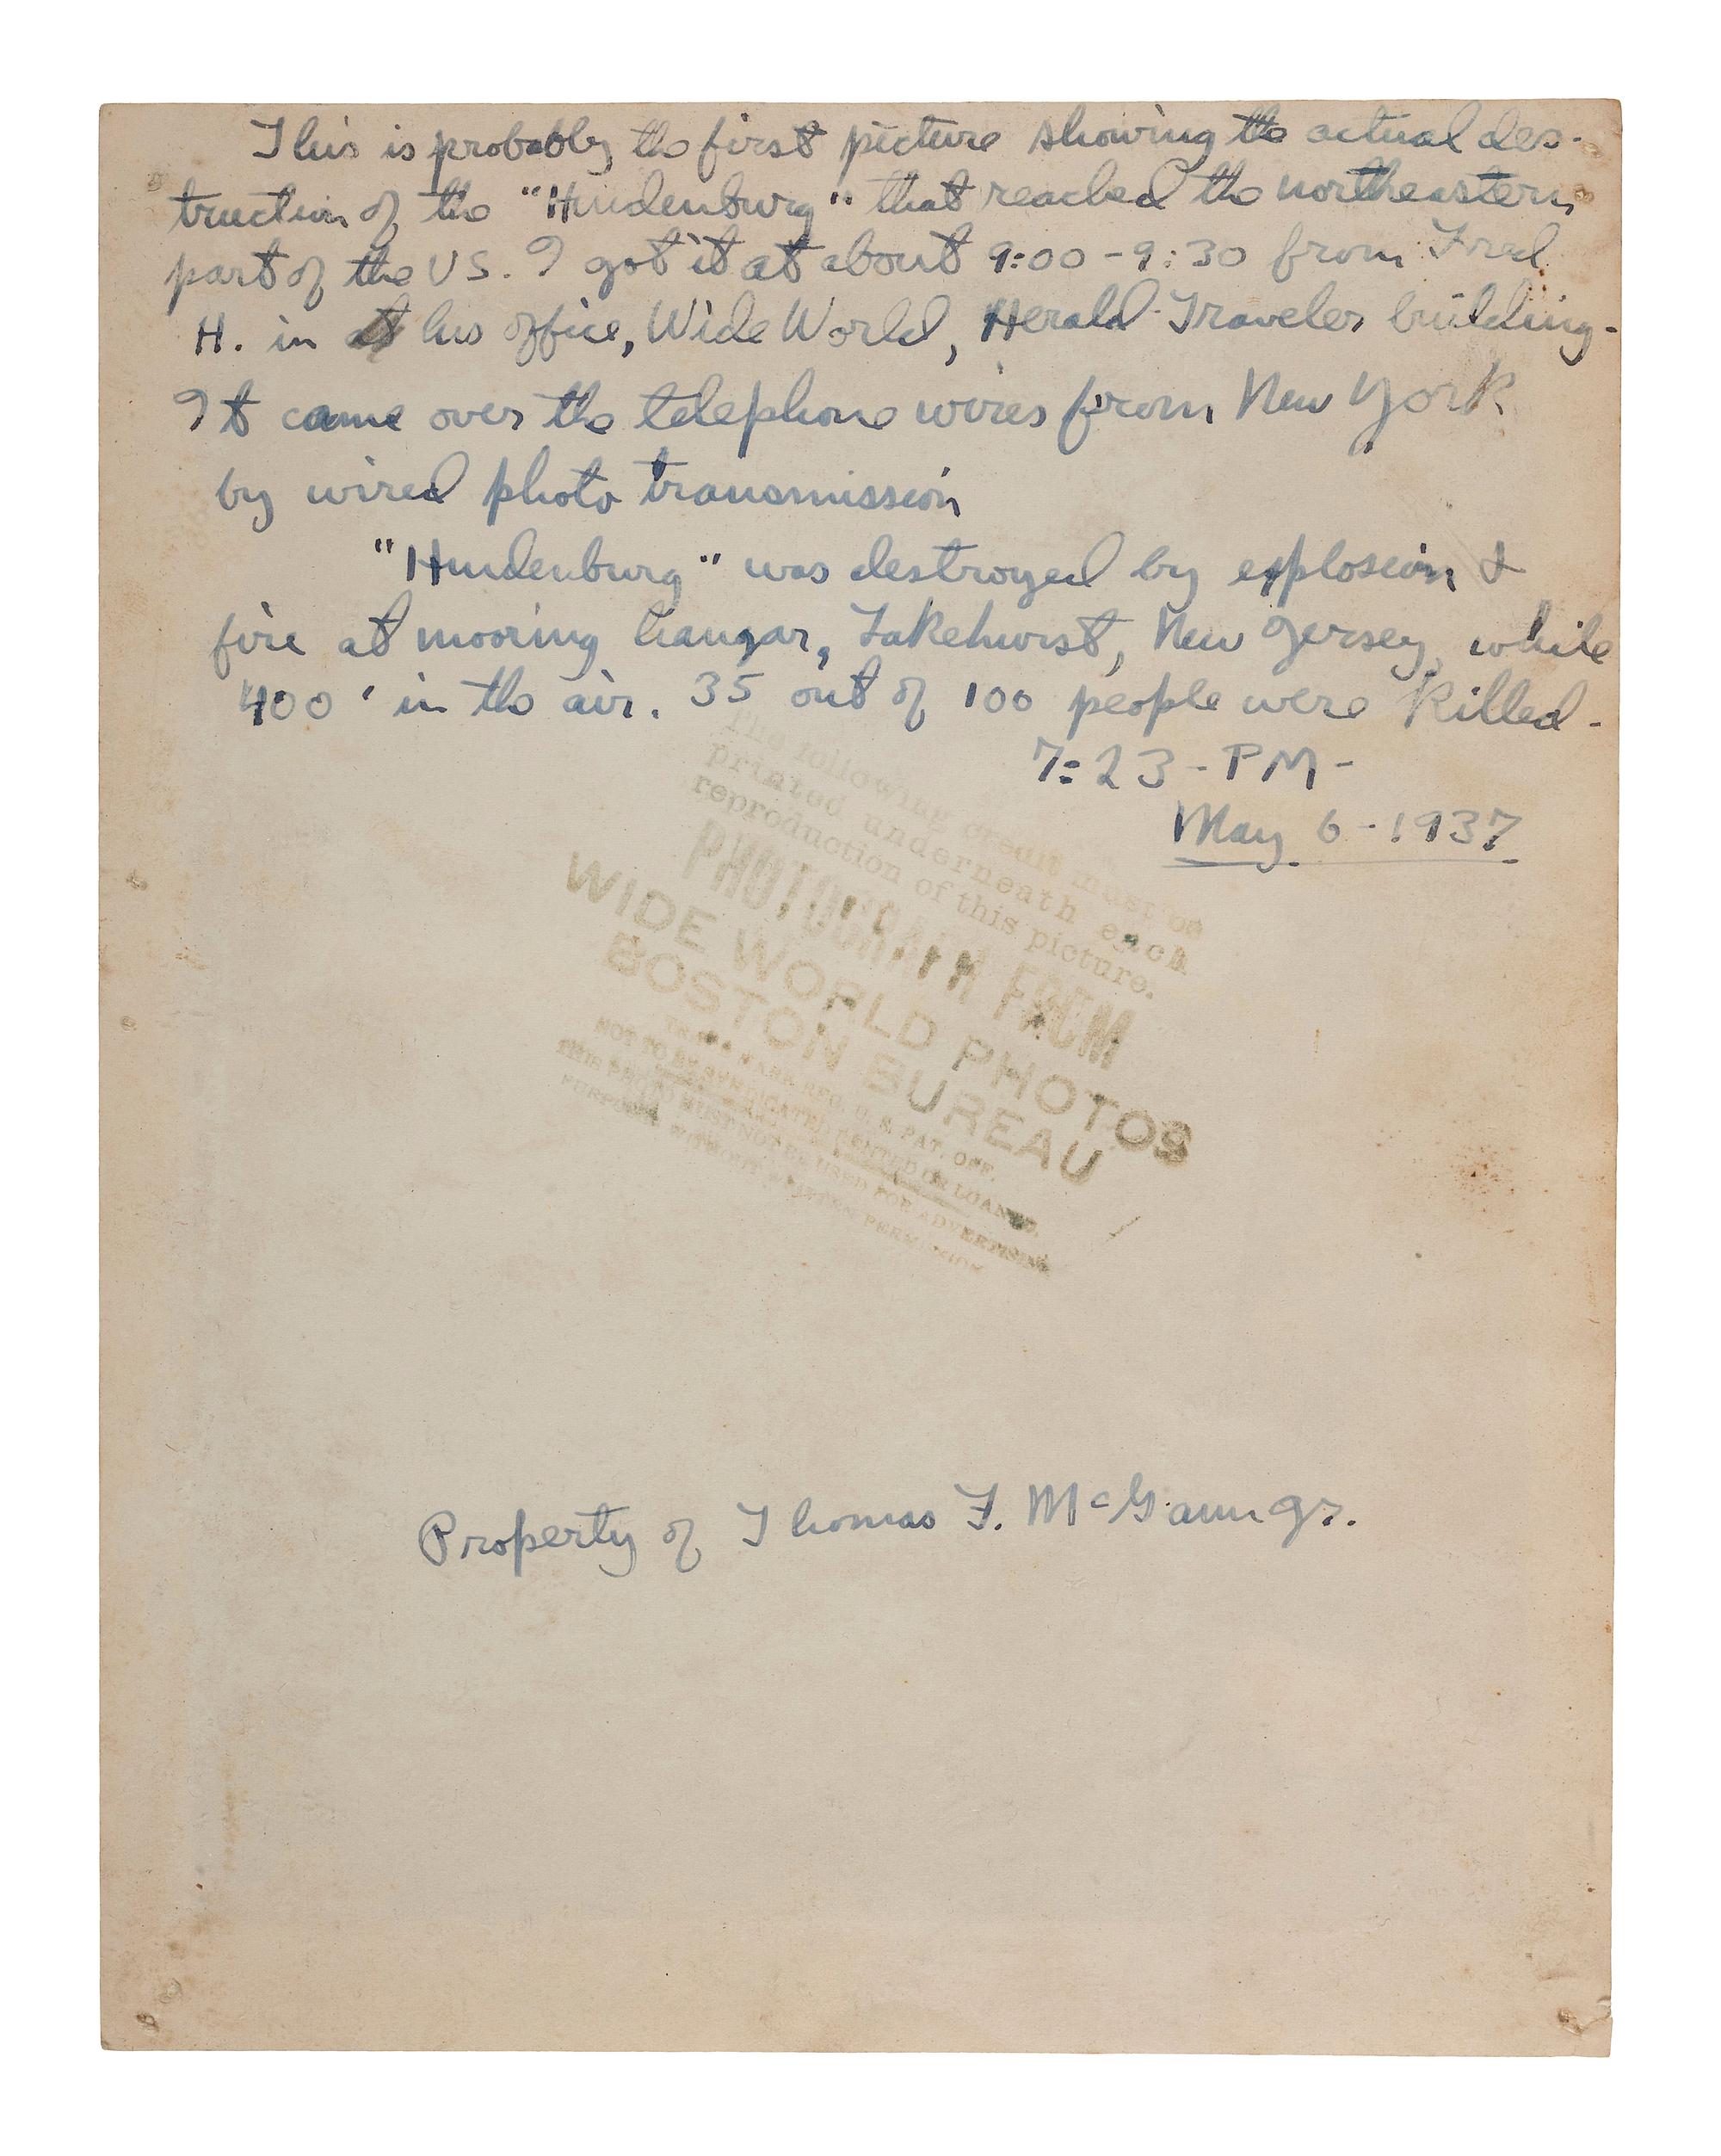 This is probably the first picture showing the actual des-
truction of the "Hindenburg" that reached the northeastern
part of the US. I got it at about 9:00-9:30 from Fred
H. in at his office, Wide World, Herald-Traveler building-
It came over the telephone wires from New York
by wired photo transmission
"Hindenburg" was destroyed by explosion &
fire at mooring hangar, Lakehurst, New Jersey, while
400' in the air. 35 out of 100 people were killed-
7:23-PM-
May 6-1937
The following credit must be
printed underneath each
reproduction of this picture.
PHOTOGRAPH FROM
WIDE WORLD PHOTOS
BOSTON BUREAU
TRADE MARK REG. U. S. PAT. OFF.
NOT TO BE SYNDICATED RENTED OR LOANED.
THIS PHOTO MUST NOT BE USED FOR ADVERTISING
PURPOSES WITHOUT WRITTEN PERMISSION
Property of Thomas F. McGann Jr.